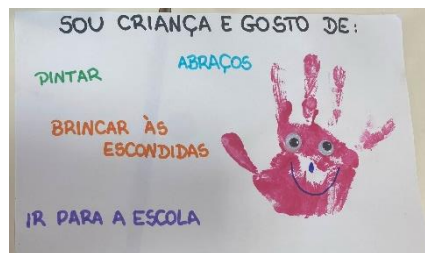 SOU CRIANÇA E GOSTO DE:
ABRAÇOS
PINTAR
BRINCAR ÀS
ESCONDIDAS
IR PARA A ESCOLA